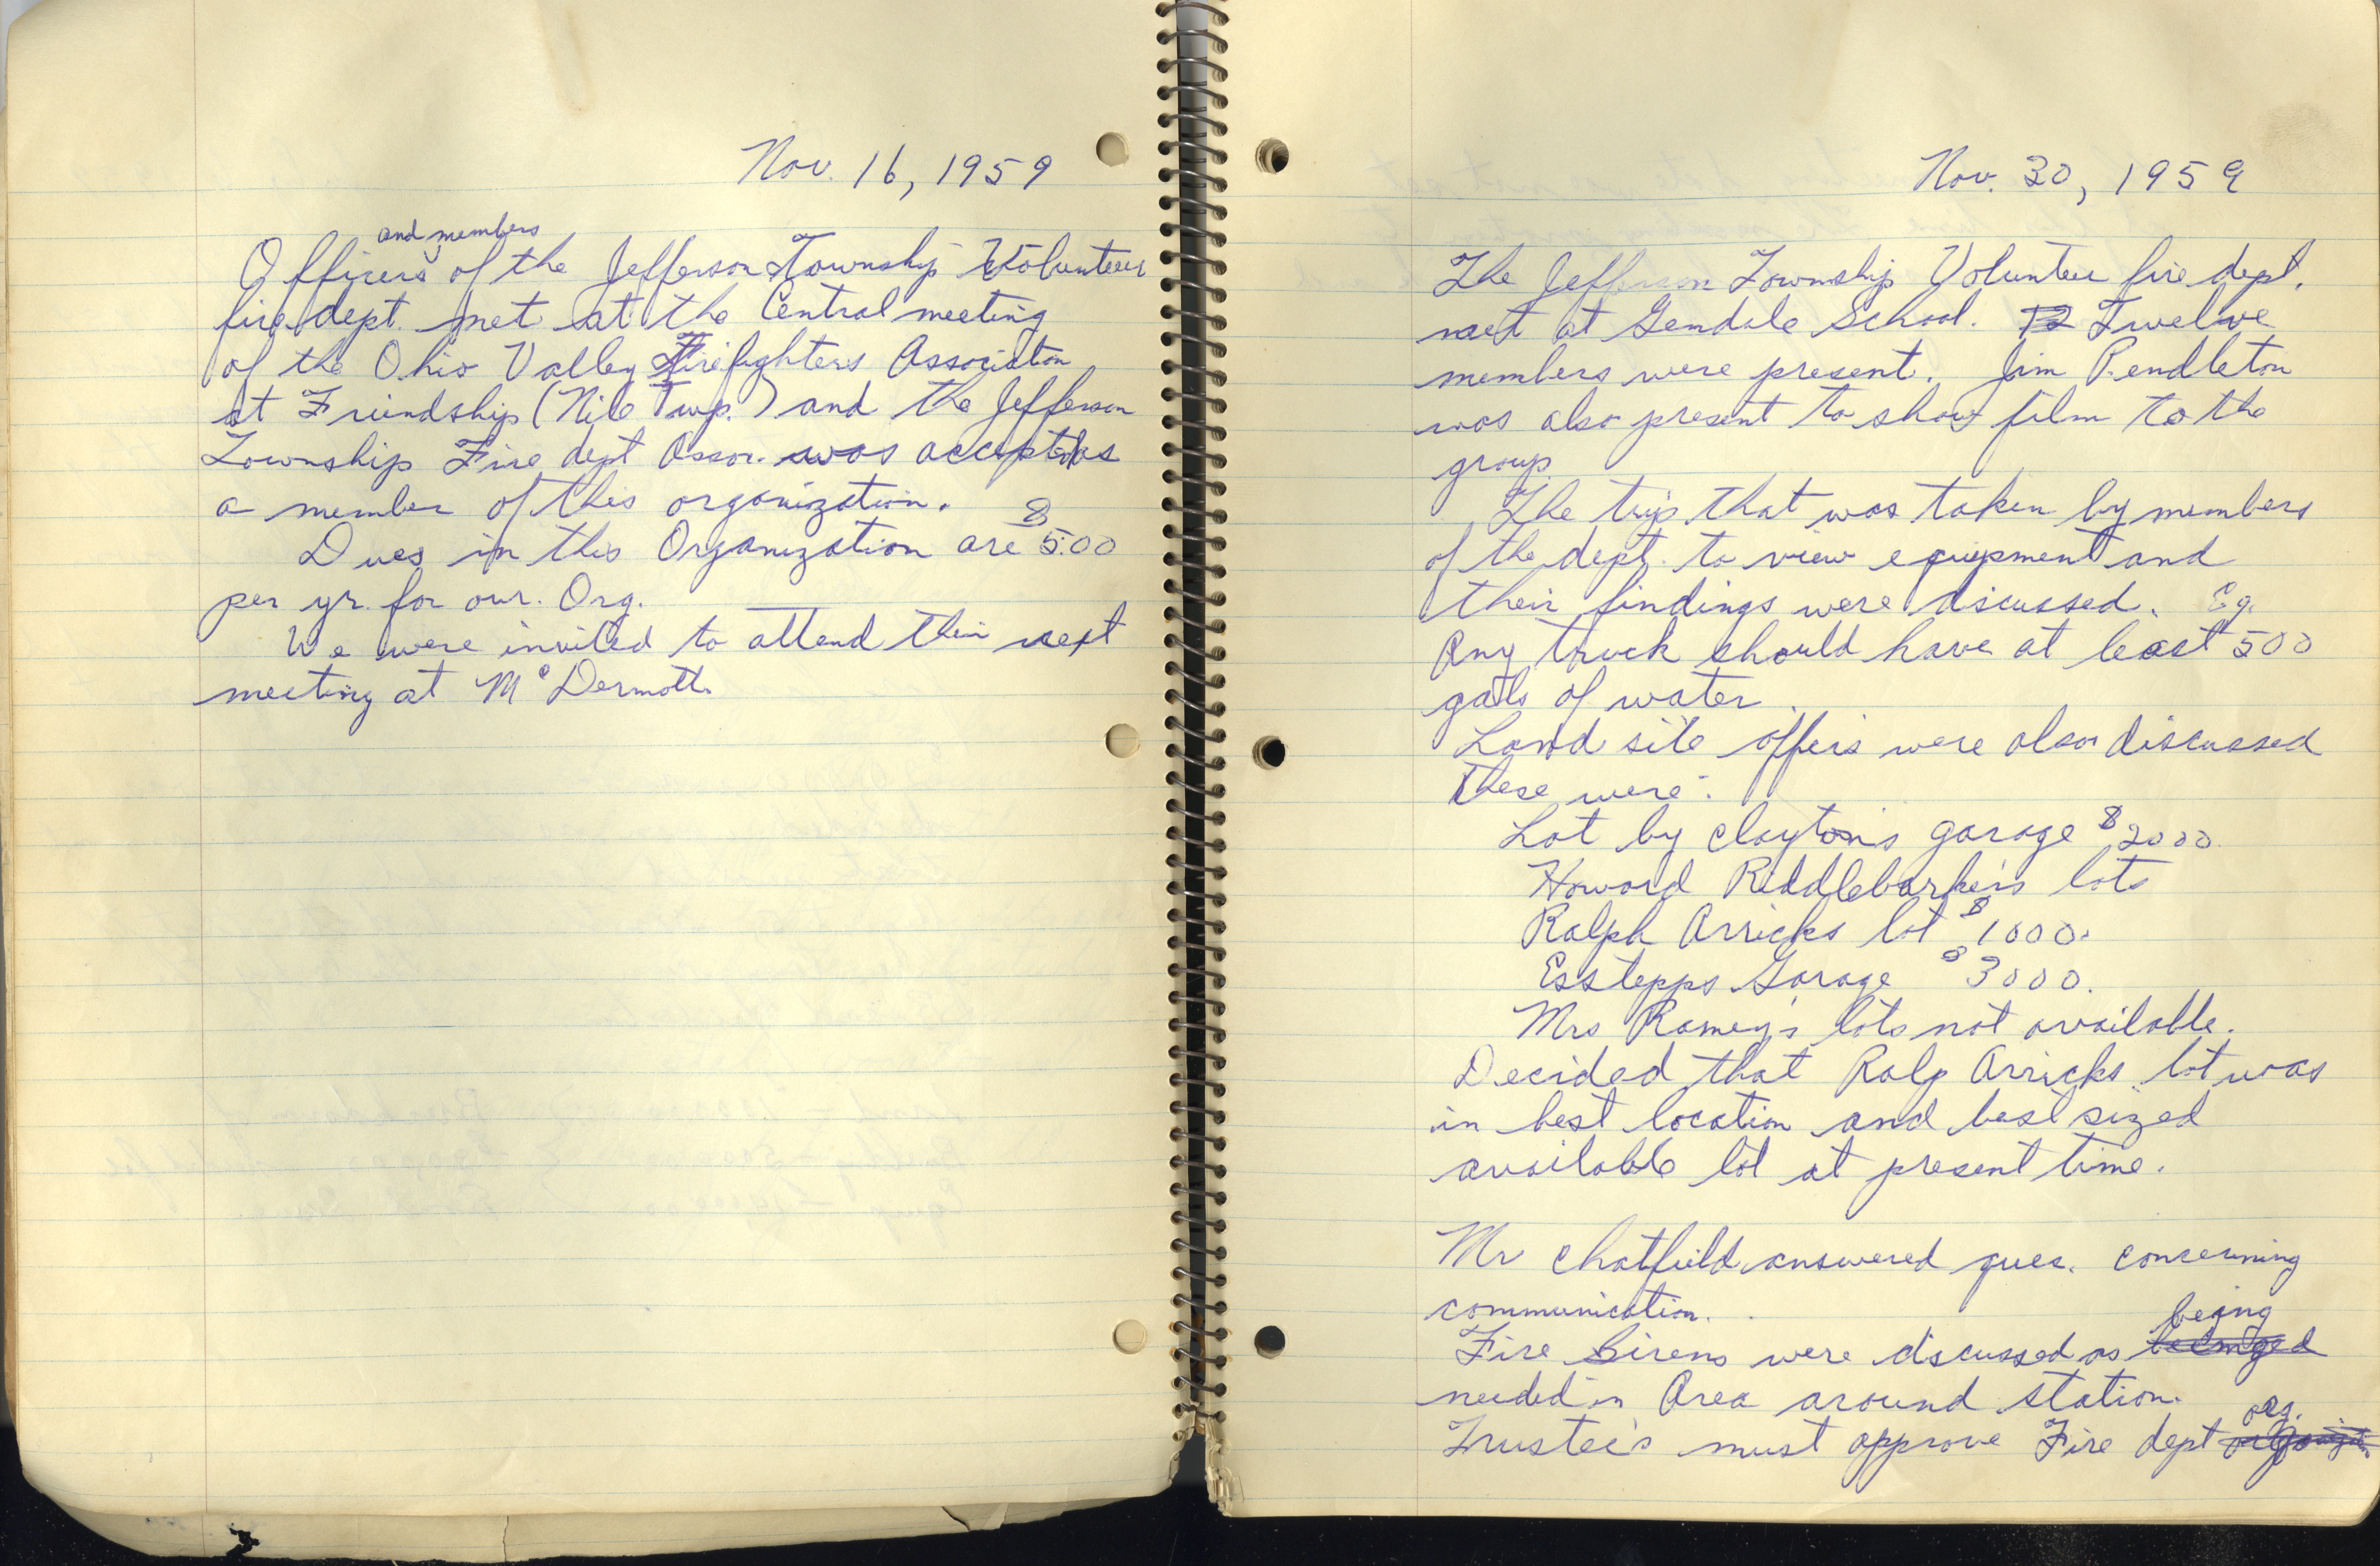 Nov. 16, 1959
and members
Officers of the Jefferson Township Volunteer
fire dept. met at the Central meeting
of the Ohio Valley Firefighters Association
at Friendship (Nile Twp.) and the Jefferson
Township Fire dept Assoc. was accepted as
a member of this organization.
Dues in this Organization are $5.00
per yr. for our. Org.
We were invited to attend their next
meeting at McDermott.
Nov. 30, 1959
The Jefferson Township Volunteer fire dept.
met at Glendale School. 12 Twelve
members were present. Jim Pendleton
was also present to show film to the
group
The trip that was taken by members
of the dept. to view equipment and
their findings were discussed. Eg.
Any truck should have at least 500
gals of water.
Land site offers were also discussed
these were:
Lot by Clayton's garage $2000
Howard Riddlebarger's lots
Ralph Arricks lot $1000.
Esstepps Garage $3000.
Mrs Ramey's lots not available.
Decided that Ralp Arricks lot was
in best location and best sized
available lot at present time.
Mr Chatfield answered ques. concerning
communication.
being
Fire Sirens were discussed as
needed in Area around station.
org.
Trustee's must approve Fire dept organization